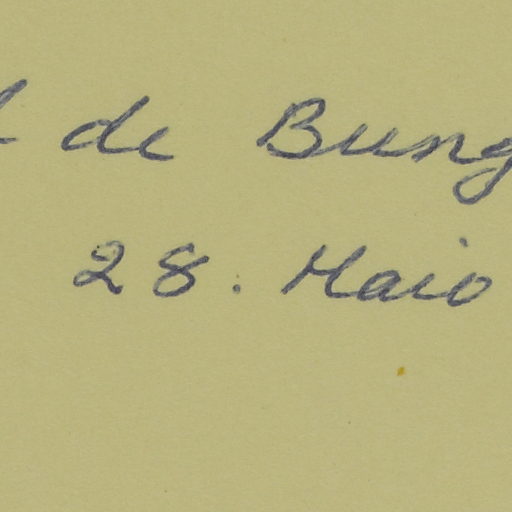 de Bung
28. Maio